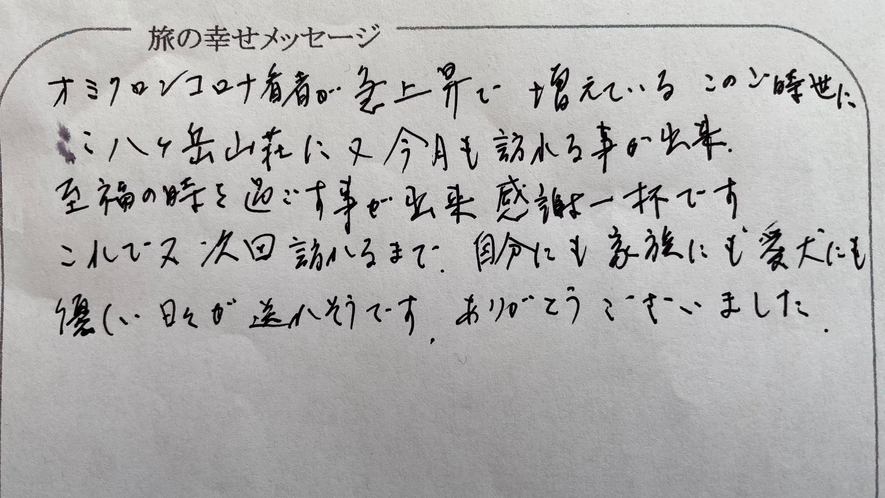 旅の幸せメッセージ
オミクロンコロナ患者が急上昇で増えているこのご時世に
ミハケ岳山荘に又今月も訪れる事が出来.
至福の時を過ごす事が出来感謝一杯です
これで又次回訪れるまで.自分にも家族にも愛犬にも
優しい日々が送れそうです.ありがとうございました.